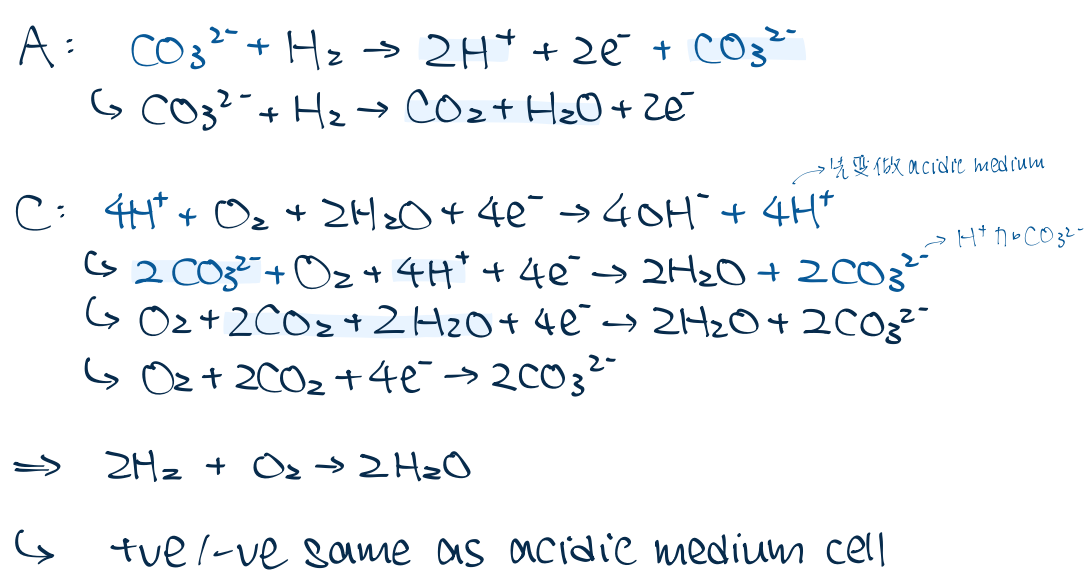 A: CO₃²⁻ + H₂ → 2H⁺ + 2e⁻ + CO₃²⁻
↳ CO₃²⁻ + H₂ → CO₂ + H₂O + 2e⁻
→先變做 acidic medium
C: 4H⁺ + O₂ + 2H₂O + 4e⁻ → 4OH⁻ + 4H⁺
→ H⁺ 加 CO₃²⁻
↳ 2CO₃²⁻ + O₂ + 4H⁺ + 4e⁻ → 2H₂O + 2CO₃²⁻
↳ O₂ + 2CO₂ + 2H₂O + 4e⁻ → 2H₂O + 2CO₃²⁻
↳ O₂ + 2CO₂ + 4e⁻ → 2CO₃²⁻
⇒ 2H₂ + O₂ → 2H₂O
↳ +ve/-ve same as acidic medium cell